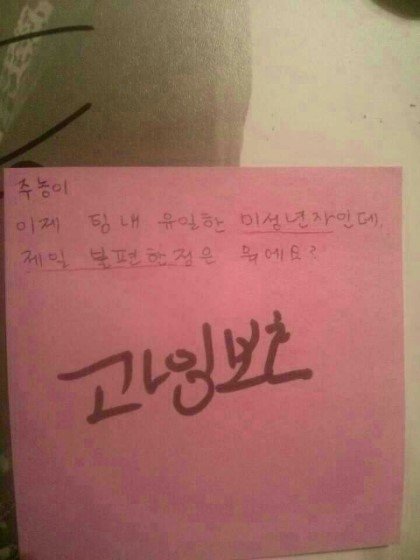 주농이
이제 팀내 유일한 미성년자인데,
제일 불편한점은 뭐에요?
과잉보호